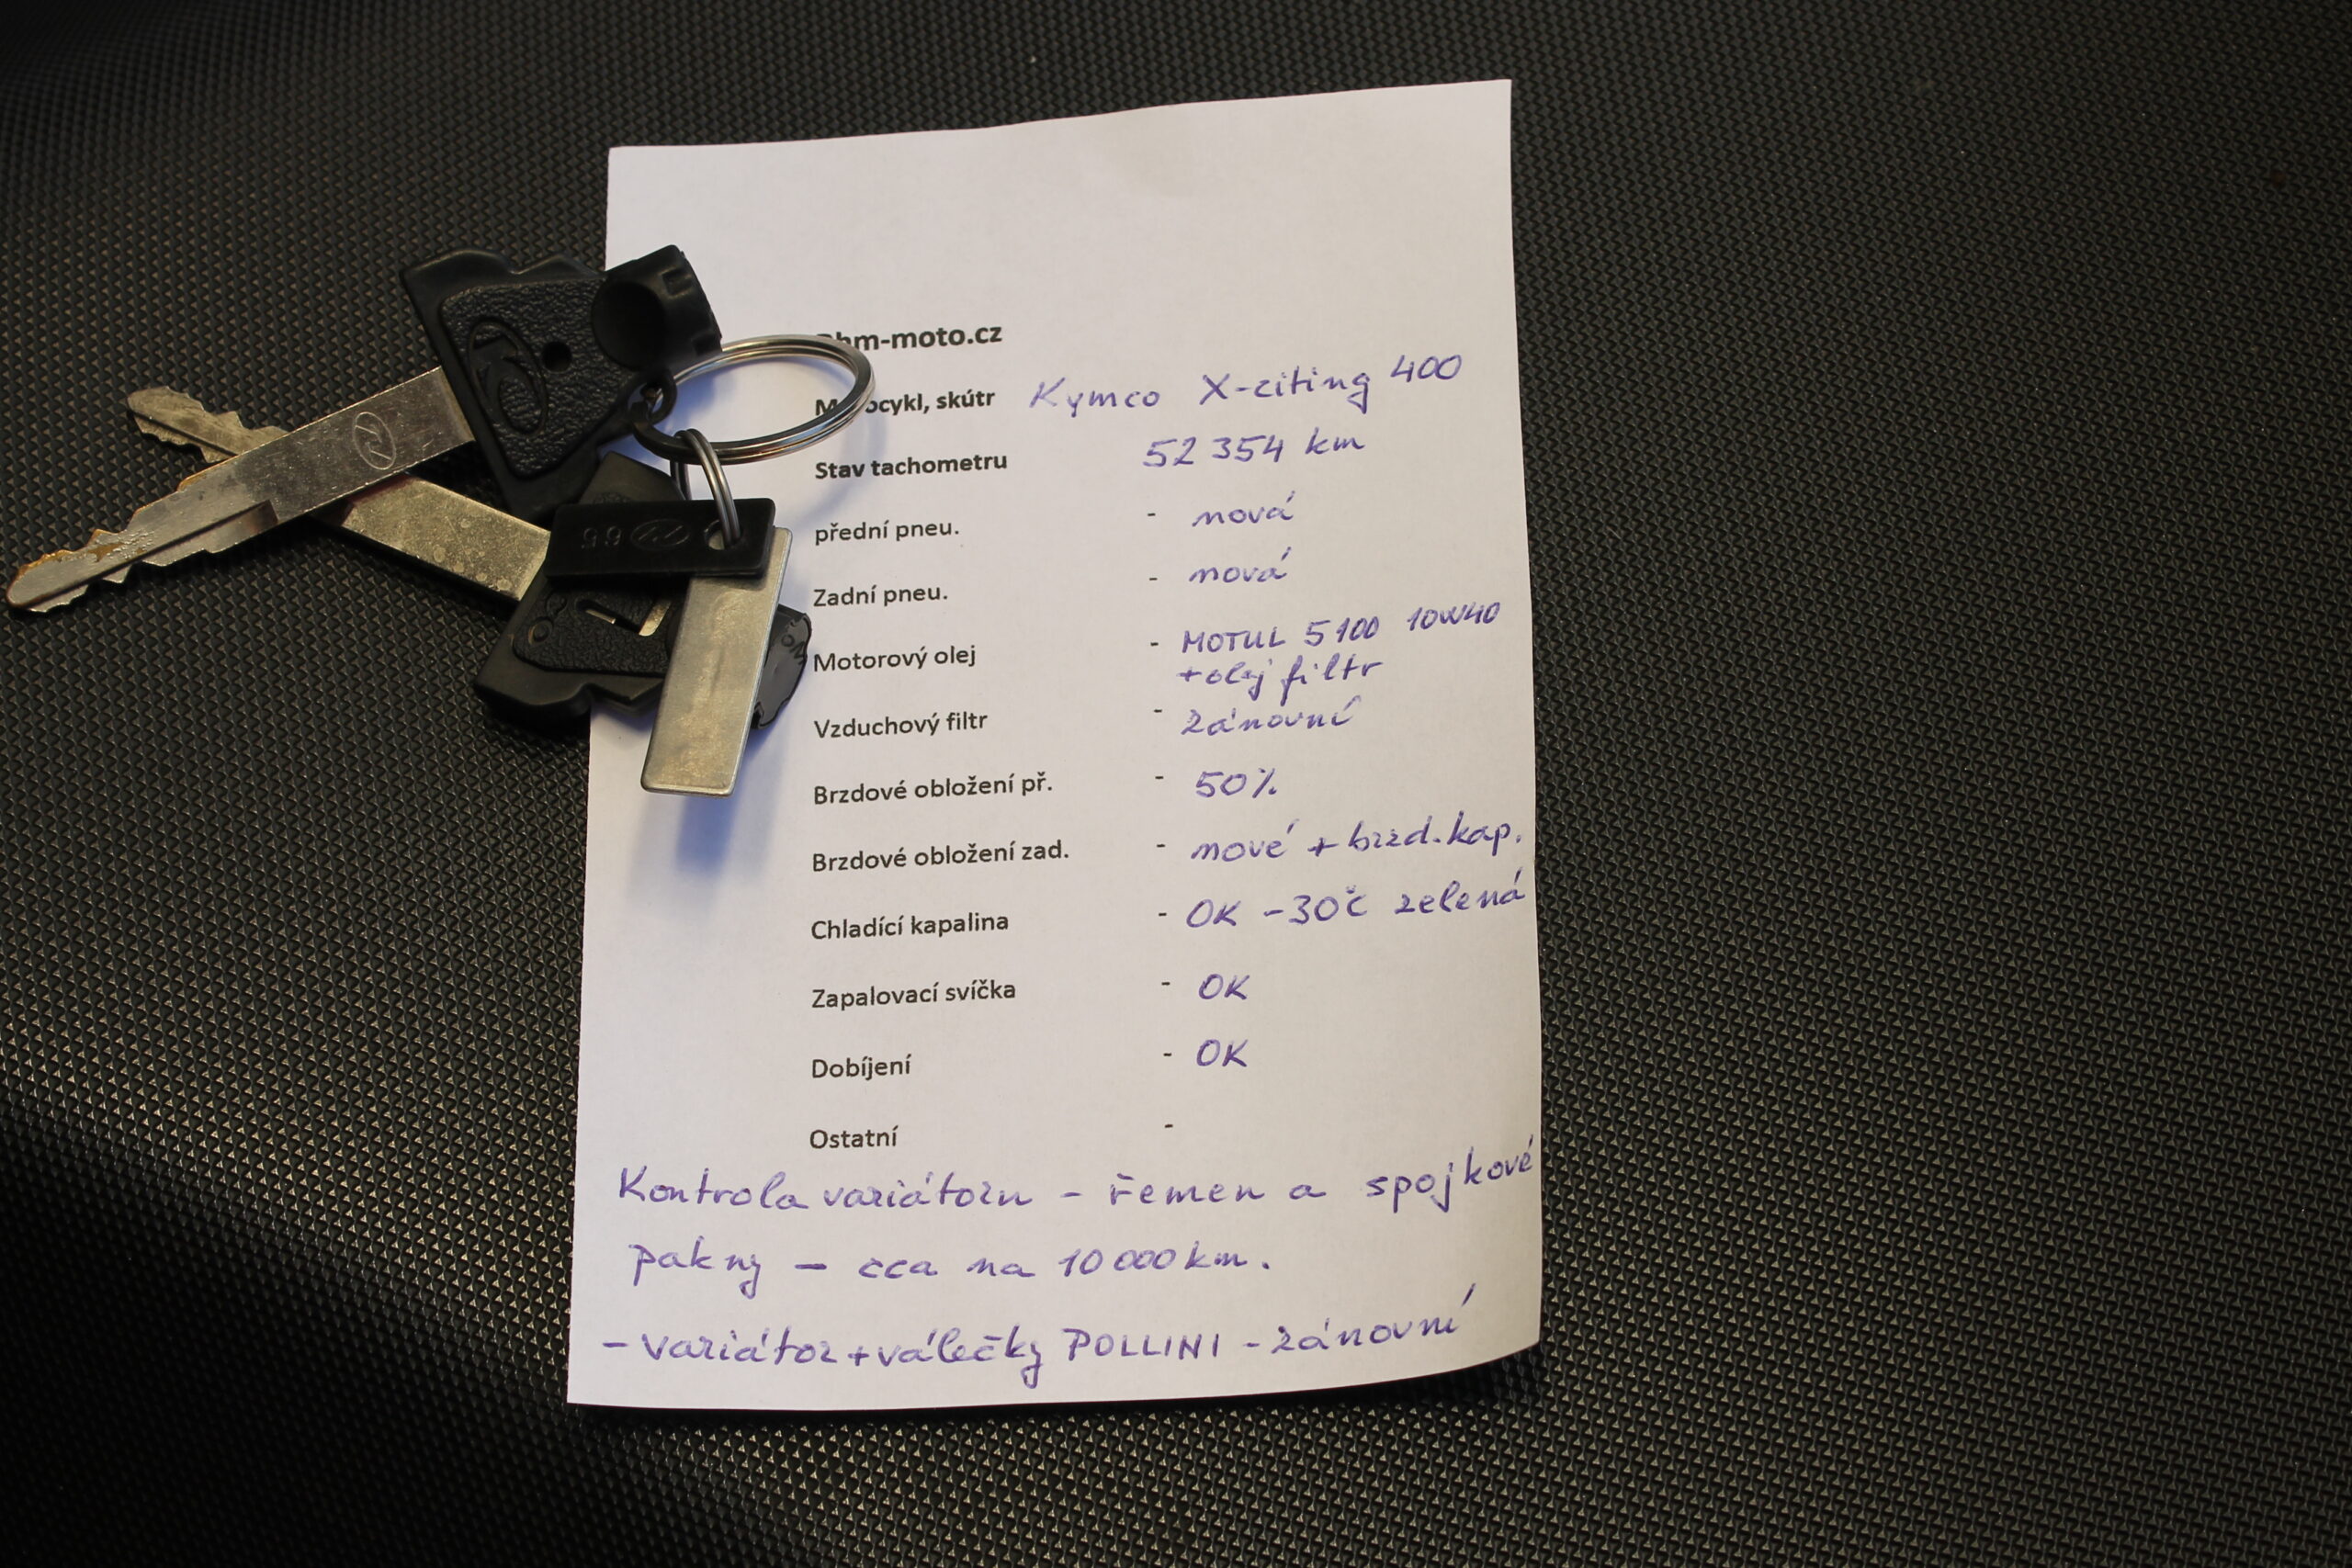 hm-moto.cz
Motocykl, skútr Kymco X-citing 400
Stav tachometru 52 354 km
přední pneu. - nová
Zadní pneu. - nová
Motorový olej - MOTUL 5100 10W40
+olej filtr
Vzduchový filtr - zánovní
Brzdové obložení př. - 50%
Brzdové obložení zad. - nové + brzd. kap.
Chladící kapalina - OK -30°C zelená
Zapalovací svíčka - OK
Dobíjení - OK
Ostatní -
Kontrola variátoru - řemen a spojkové
pakny - cca na 10 000 km.
- variátor + válečky POLLINI - zánovní